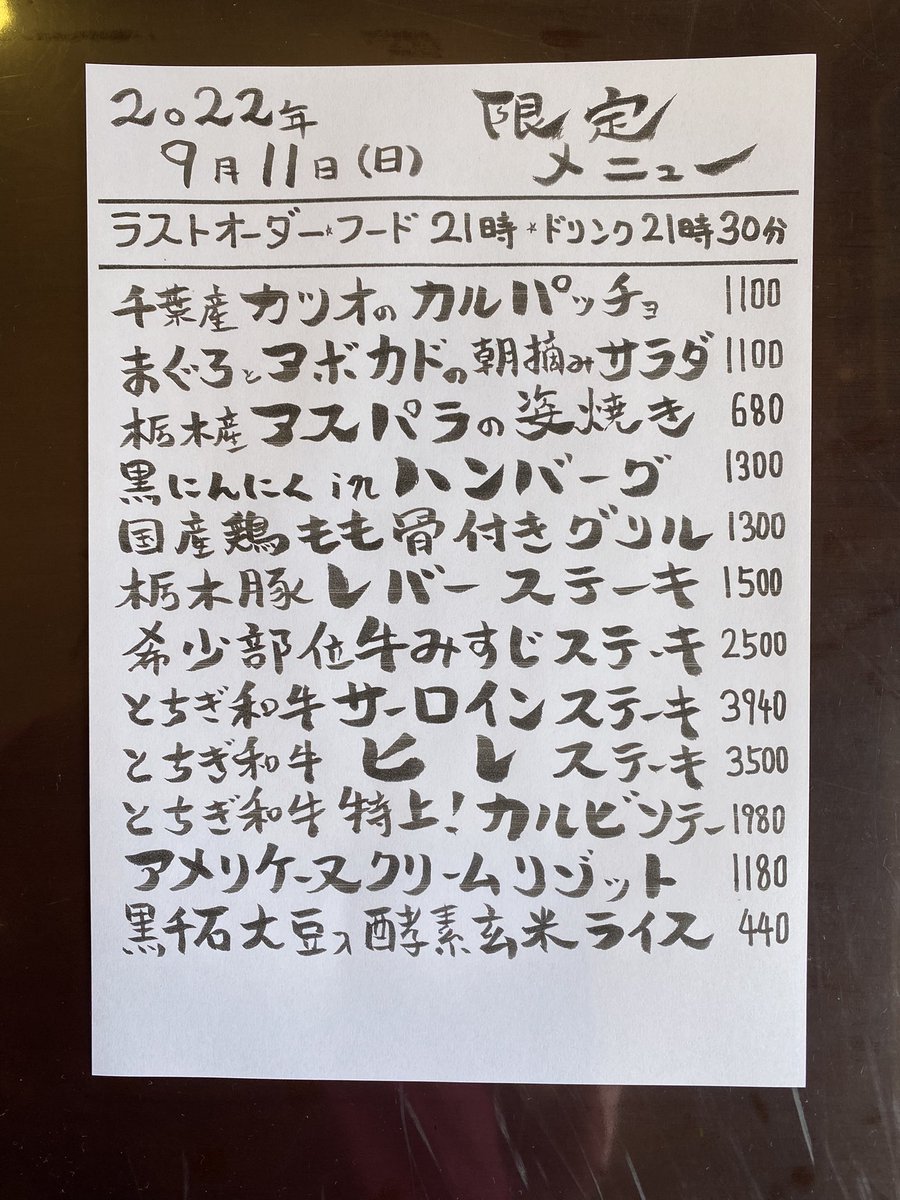 2022年 限定
9月11日(日) メニュー
ラストオーダー*フード 21時*ドリンク21時30分
千葉産カツオのカルパッチョ 1100
まぐろとアボカドの朝摘みサラダ 1100
栃木産アスパラの姿焼き 680
黒にんにくinハンバーグ 1300
国産鶏もも骨付きグリル 1300
栃木豚レバーステーキ 1500
希少部位牛みすじステーキ 2500
とちぎ和牛サーロインステーキ 3940
とちぎ和牛ヒレステーキ 3500
とちぎ和牛特上!カルビソテー 1980
アメリケーヌクリームリゾット 1180
黒千石大豆入酵素玄米ライス 440